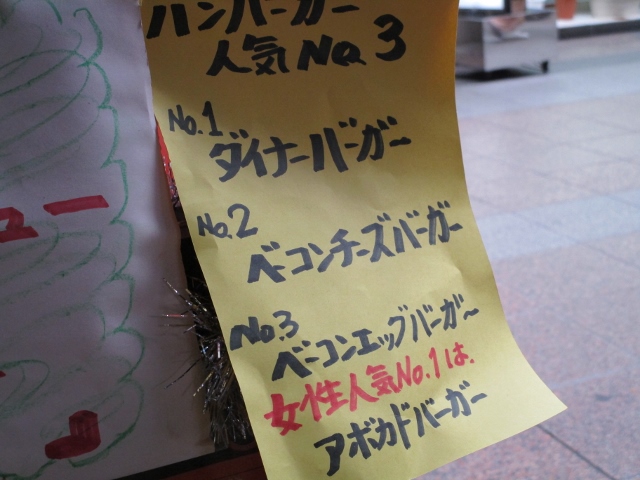 ハンバーガー
人気No.3
No.1
ダイナーバーガー
No.2
ベーコンチーズバーガー
No.3
ベーコンエッグバーガー
女性人気No.1は、
アボカドバーガー
ュー